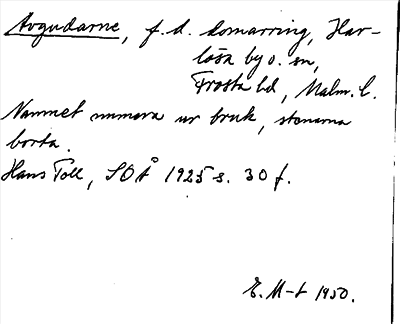 Avgudarne, f. d. domarring, Har-
lösa by o. sn,
Frosta hd, Malm. l.
Namnet numera ur bruk, stenarna
borta.
Hans Toll, SOÅ 1925 s. 30 f.
E. M-t 1950.